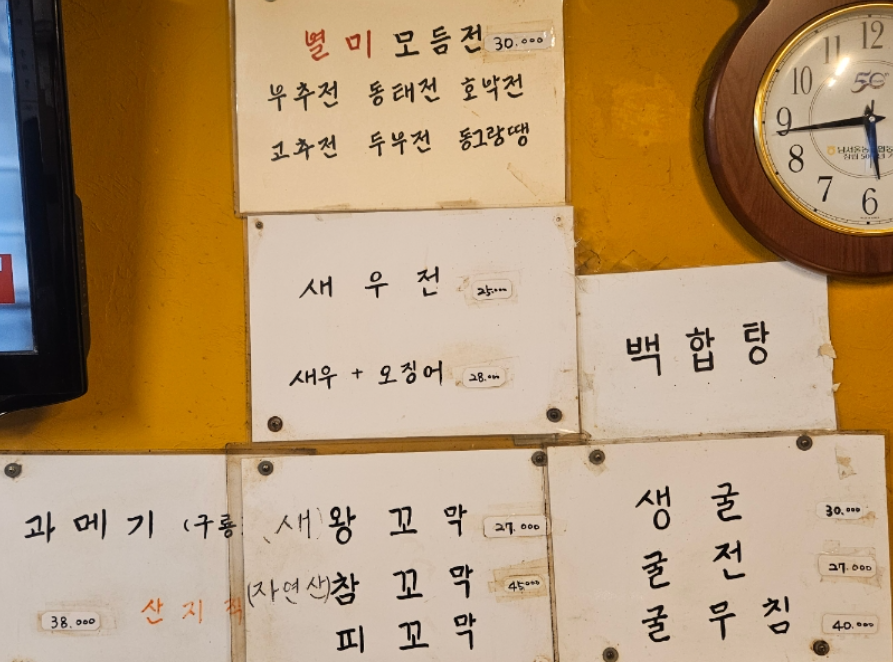 별미모듬전 30.000
부추전 동태전 호박전
고추전 두부전 동그랑땡
새우전 25.000
새우 + 오징어 28.000
백합탕
과메기 (구룡
산지직
38.000
(새)왕꼬막 27.000
(자연산)참꼬막 45000
피꼬막
생굴 30.000
굴전 27.000
굴무침 40.000
12
11
10
9
8
7
6
50